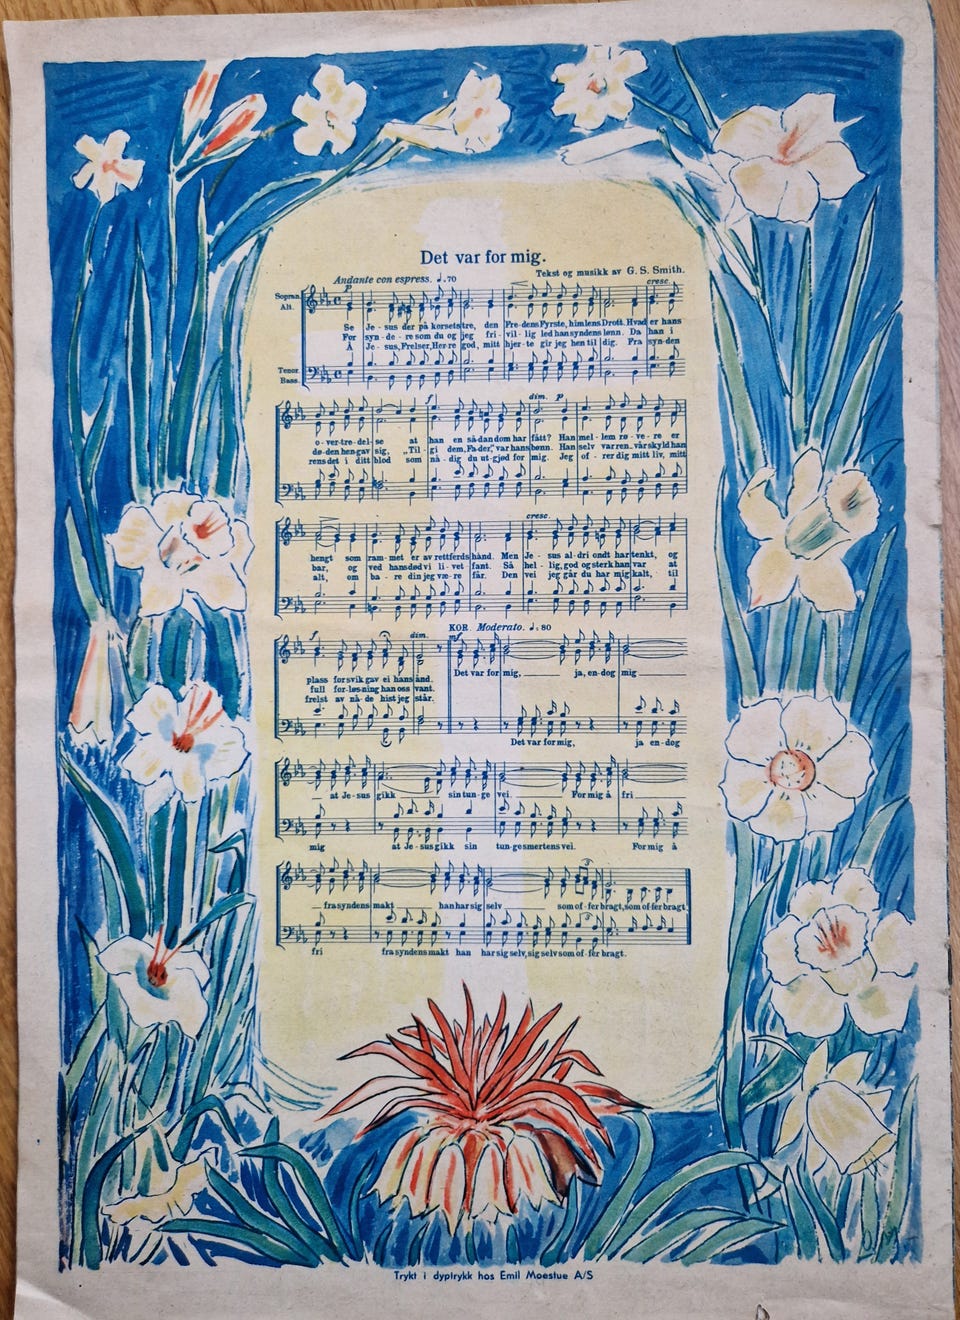 Det var for mig.
Tekst og musikk av G. S. Smith.
Andante con espress. ♩.70
cresc.
p
Sopran.
Alt.
Se Je-sus der på korsets tre, den Fre-dens Fyrste, himlens Drott. Hvad er hans
For syn-de-re som du og jeg fri-vil-lig led han syndens lønn. Da han i
Å Je-sus, Frelser, Herre god, mitt hjer-te gir jeg hen til dig. Fra syn-den
Tenor.
Bass.
f dim. p
o-ver-tre-del-se at han en så-dan dom har fått? Han mel-lem rø-ve-re er
dø-den hen gav sig, „Til-gi dem, Fader," var hans bønn. Han selv var ren, vår skyld han
rens det i ditt blod som nå-dig du ut-gjød for mig. Jeg of-rer dig mitt liv, mitt
cresc.
hengt som ram-met er av rettferds hånd. Men Je-sus al-dri ondt har tenkt, og
bar, og ved hans død vi li-vet fant. Så hel-lig, god og sterk han var at
alt, om ba-re din jeg væ-re får. Den vei jeg går du har mig kalt, til
KOR. Moderato. ♩.80
f dim. mf
plass for svik gav ei hans ånd. Det var for mig, ja, en-dog mig
full for-løs-ning han oss vant.
frelst av nå-de hist jeg står.
Det var for mig, ja en-dog
at Je-sus gikk sin tun-ge vei. For mig å fri
mig at Je-sus gikk sin tun-ge smertens vei. For mig å
3
fra syndens makt han har sig selv som of-fer bragt, som of-fer bragt
3
fri fra syndens makt han har sig selv, sig selv som of-fer bragt.
Trykt i dyptrykk hos Emil Moestue A/S